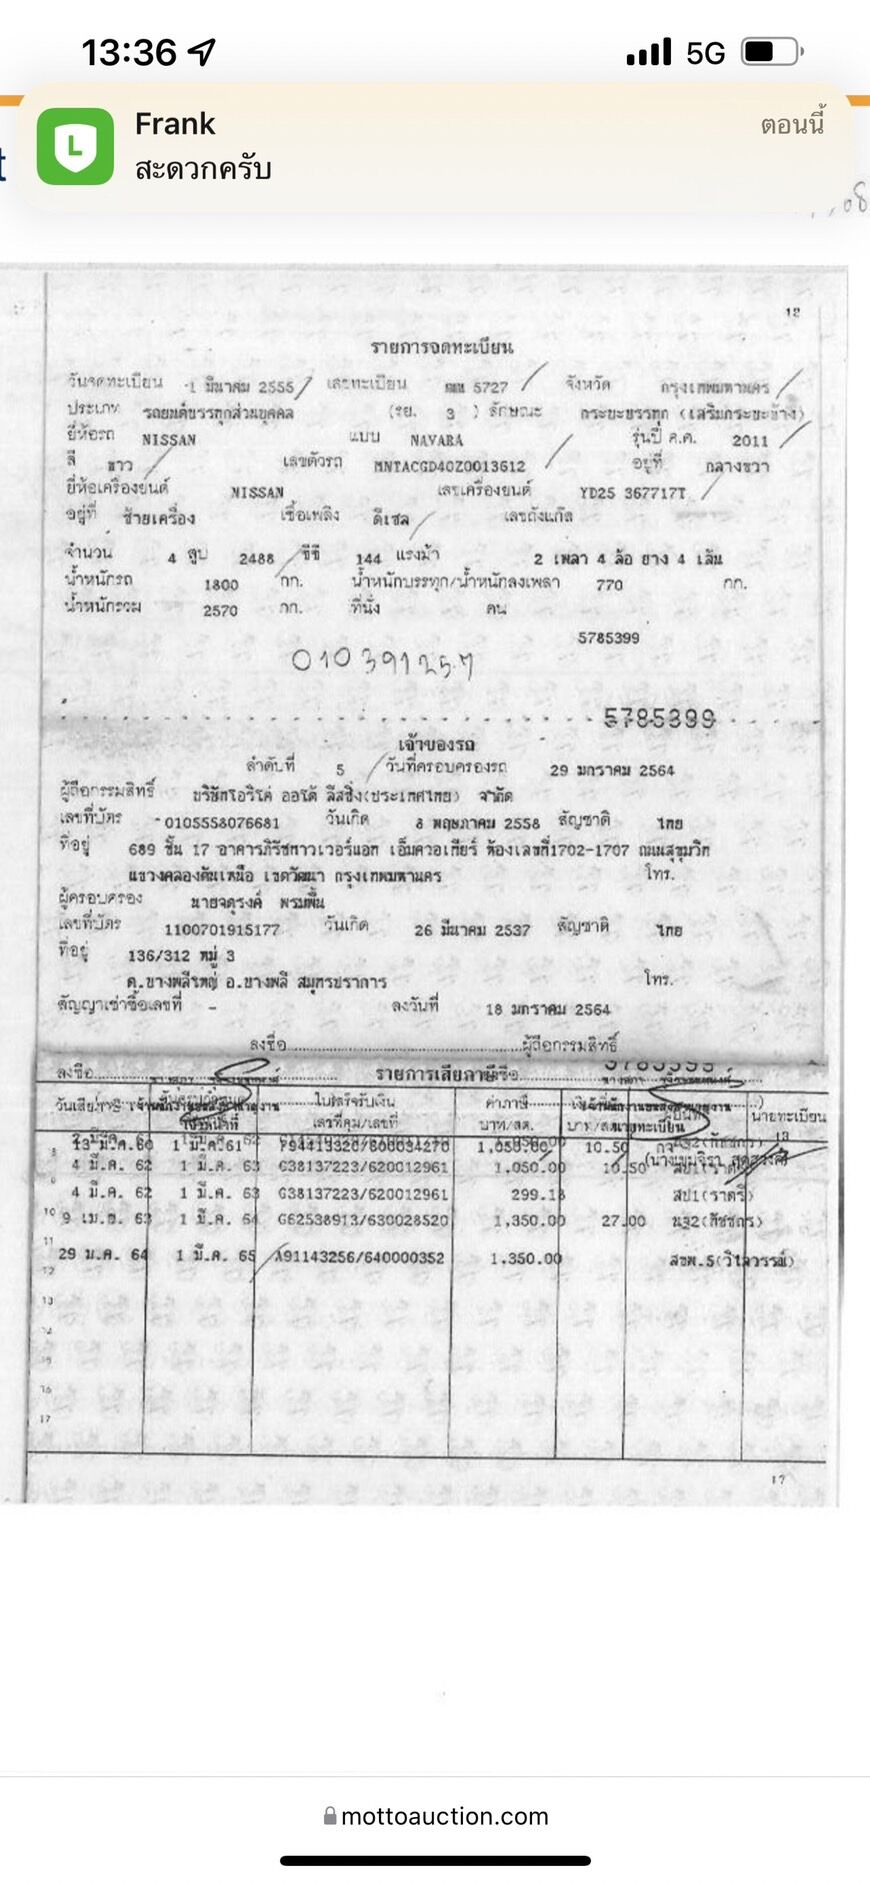 13:36
5G
Frank
ตอนนี้
สะดวกครับ
18
รายการจดทะเบียน
วันจดทะเบียน 1 มีนาคม 2555 เลขทะเบียน 5727 จังหวัด กรุงเทพมหานคร
ประเภท รถยนต์บรรทุกส่วนบุคคล (รย. 3 ) ลักษณะ กระบะบรรทุก (เสริมกระบะข้าง)
ยี่ห้อรถ NISSAN แบบ NAVARA รุ่นปี ค.ศ. 2011
สี ขาว เลขตัวรถ MNTACGD40Z0013612 อยู่ที่ กลางขวา
ยี่ห้อเครื่องยนต์ NISSAN เลขเครื่องยนต์ YD25 367717T
อยู่ที่ ซ้ายเครื่อง เชื้อเพลิง ดีเซล เลขถังแก๊ส
จำนวน 4 สูบ 2488 ซีซี 144 แรงม้า 2 เพลา 4 ล้อ ยาง 4 เส้น
น้ำหนักรถ 1800 กก. น้ำหนักบรรทุก/น้ำหนักลงเพลา 770 กก.
น้ำหนักรวม 2570 กก. ที่นั่ง คน
5785399
010391257
5785399
เจ้าของรถ
ลำดับที่ 5 วันที่ครอบครองรถ 29 มกราคม 2564
ผู้ถือกรรมสิทธิ์ บริษัทโอริโค่ ออโต้ ลีสซิ่ง(ประเทศไทย) จำกัด
เลขที่บัตร 0105558076681 วันเกิด 8 พฤษภาคม 2558 สัญชาติ ไทย
ที่อยู่ 689 ชั้น 17 อาคารภิรัชทาวเวอร์แอท เอ็มควอเทียร์ ห้องเลขที่1702-1707 ถนนสุขุมวิท
แขวงคลองตันเหนือ เขตวัฒนา กรุงเทพมหานคร โทร.
ผู้ครอบครอง นายจตุรงค์ พรมพื้น
เลขที่บัตร 1100701915177 วันเกิด 26 มีนาคม 2537 สัญชาติ ไทย
ที่อยู่ 136/312 หมู่ 3
ต.บางพลีใหญ่ อ.บางพลี สมุทรปราการ โทร.
สัญญาเช่าซื้อเลขที่ - ลงวันที่ 18 มกราคม 2564
ลงชื่อ ผู้ถือกรรมสิทธิ์
ลงชื่อ รายการเสียภาษี
ใบเสร็จรับเงิน ค่าภาษี
เลขที่คุม/เลขที่ บาท/สต. นายทะเบียน
13 มี.ค. 60 1 มี.ค. 61 10.50
4 มี.ค. 62 1 มี.ค. 63 G38137223/620012961 1,050.00 10.50 สป1(ราตรี)
4 มี.ค. 62 1 มี.ค. 63 G38137223/620012961 299.18 สป1(ราตรี)
10 9 เม.ย. 63 1 มี.ค. 64 G62538913/630028520 1,350.00 27.00 นฐ2(ภัชชกร)
11 29 ม.ค. 64 1 มี.ค. 65 A91143256/640000352 1,350.00 สขพ.5(วิไลวรรณ์)
12
13
14
15
16
17
17
mottoauction.com